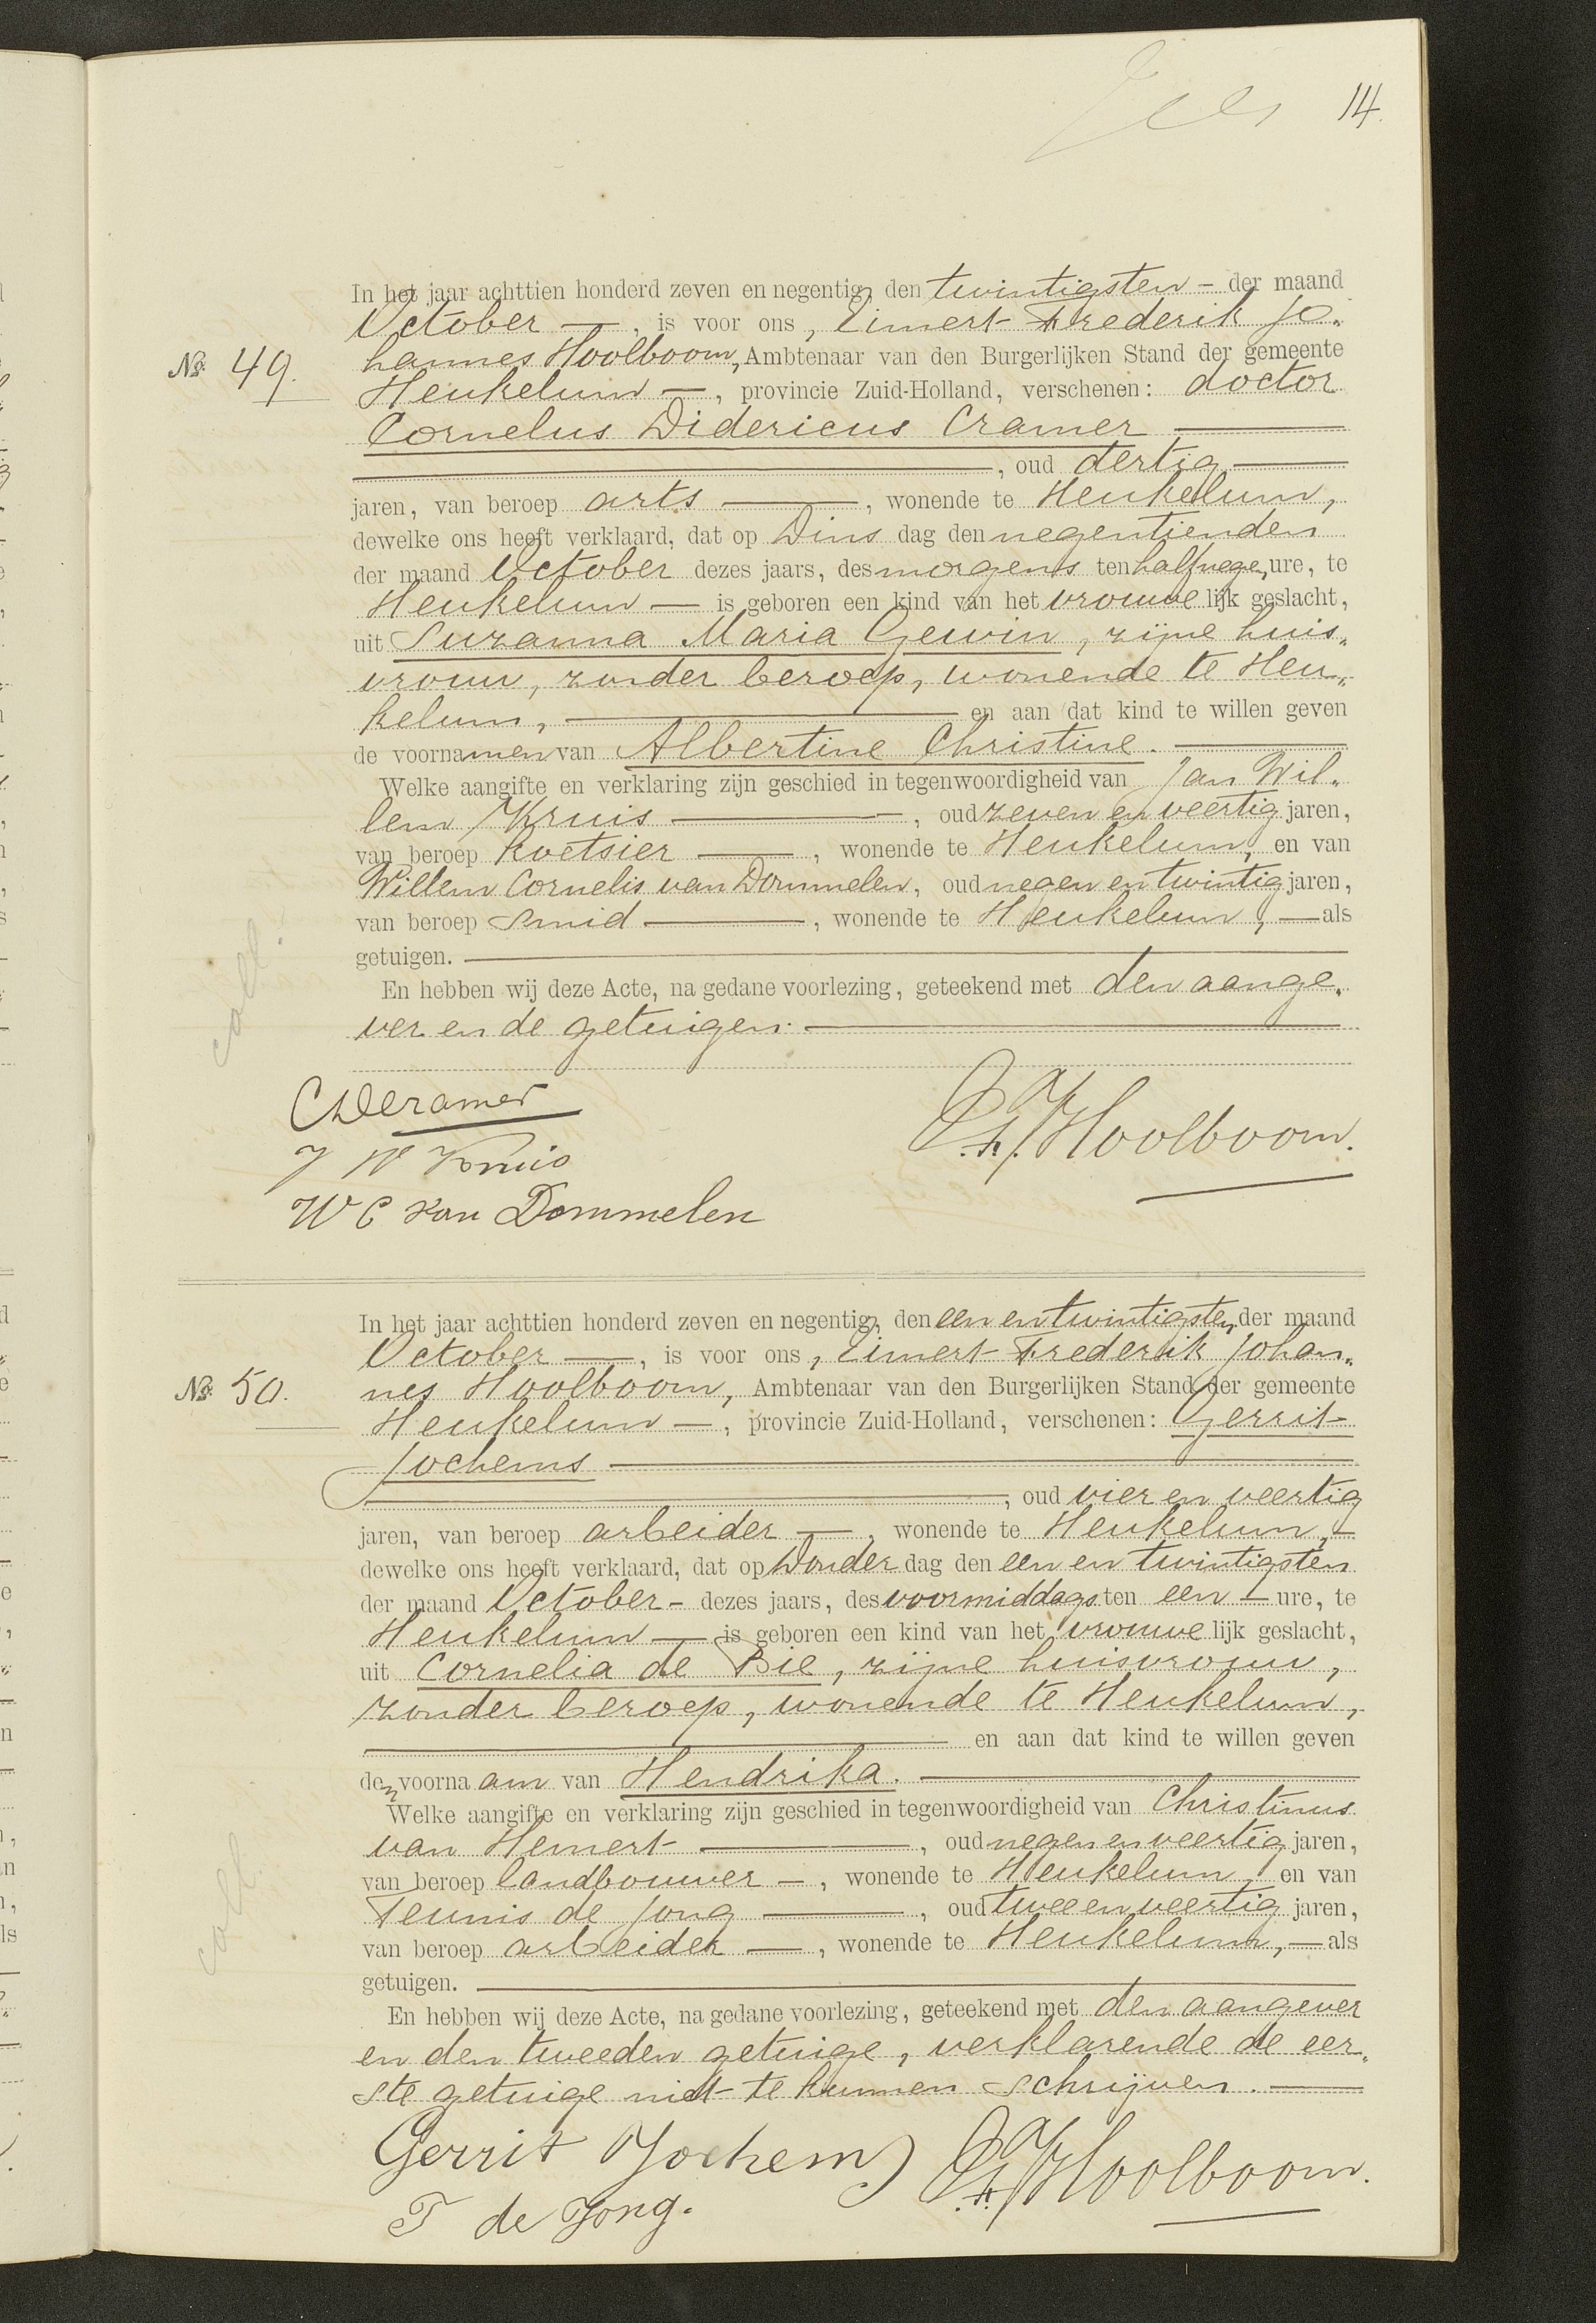 14.
In het jaar achttien honderd zeven en negentig, den twintigsten - der maand
October —, is voor ons, Eimert Frederik Jo„
No. 49.
hannes Hoolboom, Ambtenaar van den Burgerlijken Stand der gemeente
Heukelum —, provincie Zuid-Holland, verschenen: doctor
Cornelus Didericus Cramer —
—, oud dertig —
jaren, van beroep arts —, wonende te Heukelum,
dewelke ons heeft verklaard, dat op Dins dag den negentienden
der maand October dezes jaars, des morgens ten half nege, ure, te
Heukelum — is geboren een kind van het vrouwe lijk geslacht,
uit Suzanna Maria Gewin, zijne huis„
vrouw, zonder beroep, wonende te Heu„
kelum, — en aan dat kind te willen geven
de voornamen van Albertine Christine. —
Welke aangifte en verklaring zijn geschied in tegenwoordigheid van Jan Wil„
lem Kruis —, oud zeven en veertig jaren,
van beroep koetsier —, wonende te Heukelum, en van
Willem Cornelis van Dommelen, oud negen en twintig jaren,
van beroep smid —, wonende te Heukelum, — als
getuigen. —
En hebben wij deze Acte, na gedane voorlezing, geteekend met den aange„
ver en de getuigen. —
coll.
CDCramer
J W Kruis
W C van Dommelen
Hoolboom.
In het jaar achttien honderd zeven en negentig, den een en twintigsten der maand
October —, is voor ons, Eimert Frederik Johan„
No. 50.
nes Hoolboom, Ambtenaar van den Burgerlijken Stand der gemeente
Heukelum —, provincie Zuid-Holland, verschenen: Gerrit
Jochems —
—, oud vier en veertig
jaren, van beroep arbeider —, wonende te Heukelum, —
dewelke ons heeft verklaard, dat op Donder dag den een en twintigsten
der maand October - dezes jaars, des voormiddags ten een — ure, te
Heukelum — is geboren een kind van het vrouwe lijk geslacht,
uit Cornelia de Bie, zijne huisvrouw,
zonder beroep, wonende te Heukelum,
— en aan dat kind te willen geven
den voorna am van Hendrika. —
Welke aangifte en verklaring zijn geschied in tegenwoordigheid van Christinus
van Hemert —, oud negen en veertig jaren,
van beroep landbouwer —, wonende te Heukelum, en van
Teunis de Jong —, oud twee en veertig jaren,
van beroep arbeider —, wonende te Heukelum, — als
getuigen. —
En hebben wij deze Acte, na gedane voorlezing, geteekend met den aangever
en den tweeden getuige, verklarende de eer„
ste getuige niet te kunnen schrijven. —
coll.
Gerrit Jochems
T de Jong.
Hoolboom.